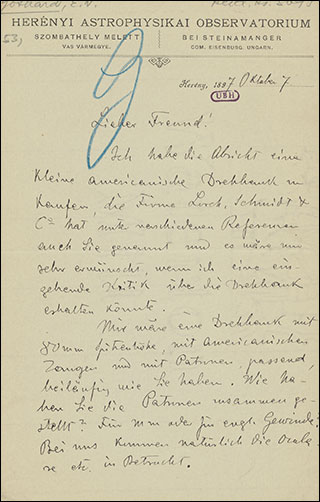 Gothard, E. v.
53,
HERÉNYI ASTROPHYSIKAI OBSERVATORIUM
SZOMBATHELY MELETT
VAS VÁRMEGYE.
BEI STEINAMANGER
COM. EISENBURG, UNGARN.
Herény, 1897 Oktober 7
UBH
Lieber Freund!
Ich habe die Absicht eine
kleine americanische Drehbank zu
kaufen, die Firma Lorch, Schmidt &
Co hat unter verschiedenen Referenzen
auch Sie genannt und es wäre mir
sehr erwünscht, wenn ich eine ein-
gehende Kritik über die Drehbank
erhalten könnte.
Mir wäre eine Drehbank mit
80mm Spitzenhöhe, mit americanischen
Zangen und mit Patronen passend,
beiläufig wie Sie haben. Wie ha-
ben Sie die Patronen zusammen ge-
stellt? Für mm oder für engl. Gewinde?
Bei uns kommen natürlich die
etc. in Betracht.